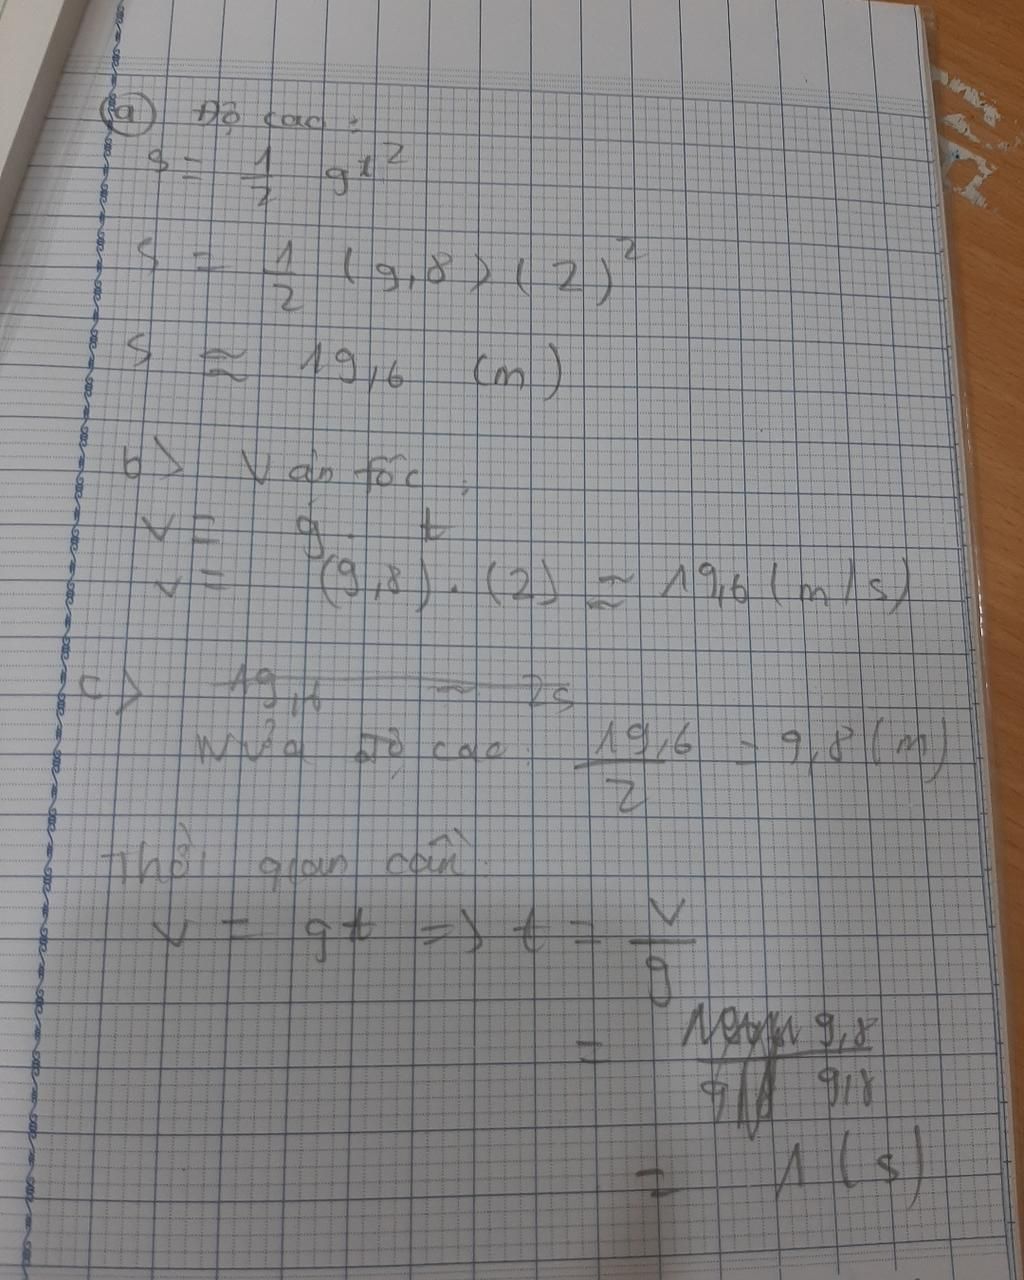 a) Độ cao :
s = 1/2 gt²
s = 1/2 (9,8) (2)²
s ≈ 19,6 (m)
b) Vận tốc :
v = g . t
v = (9,8) . (2) ≈ 19,6 (m/s)
c) 19,6 ~ 2s
Nửa độ cao : 19,6/2 = 9,8 (m)
Thời gian cần :
v = gt => t = v/g
= 9,8/9,8
= 1 (s)